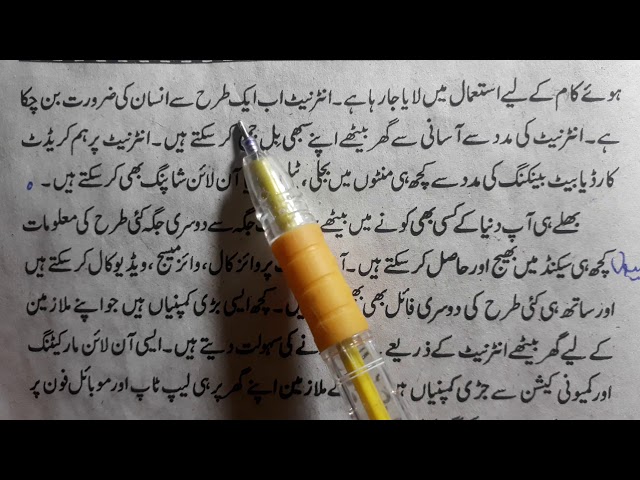 ہوئے کام کے لیے استعمال میں لایا جا رہا ہے۔ انٹرنیٹ اب ایک طرح سے انسان کی ضرورت بن چکا
ہے۔ انٹرنیٹ کی مدد سے آسانی سے گھر بیٹھے اپنے سبھی بل کر سکتے ہیں۔ انٹرنیٹ پر ہم کریڈٹ
کارڈ یا بیٹ بینکنگ کی مدد سے کچھ ہی منٹوں میں بجلی، آن لائن شاپنگ بھی کر سکتے ہیں۔
بھلے ہی آپ دنیا کے کسی بھی کونے میں بیٹھے جگہ سے دوسری جگہ کئی طرح کی معلومات
کچھ ہی سیکنڈ میں بھیج اور حاصل کر سکتے ہیں۔ پر وائز کال، وائز میسیج، ویڈیو کال کر سکتے ہیں
اور ساتھ ہی کئی طرح کی دوسری فائل بھی۔ کچھ ایسی بڑی کمپنیاں ہیں جو اپنے ملازمین
کے لیے گھر بیٹھے انٹرنیٹ کے ذریعے نے کی سہولت دیتے ہیں۔ ایسی آن لائن مارکیٹنگ
اور کمیونی کیشن سے جڑی کمپنیاں ملازمین اپنے گھر پر ہی لیپ ٹاپ اور موبائل فون پر